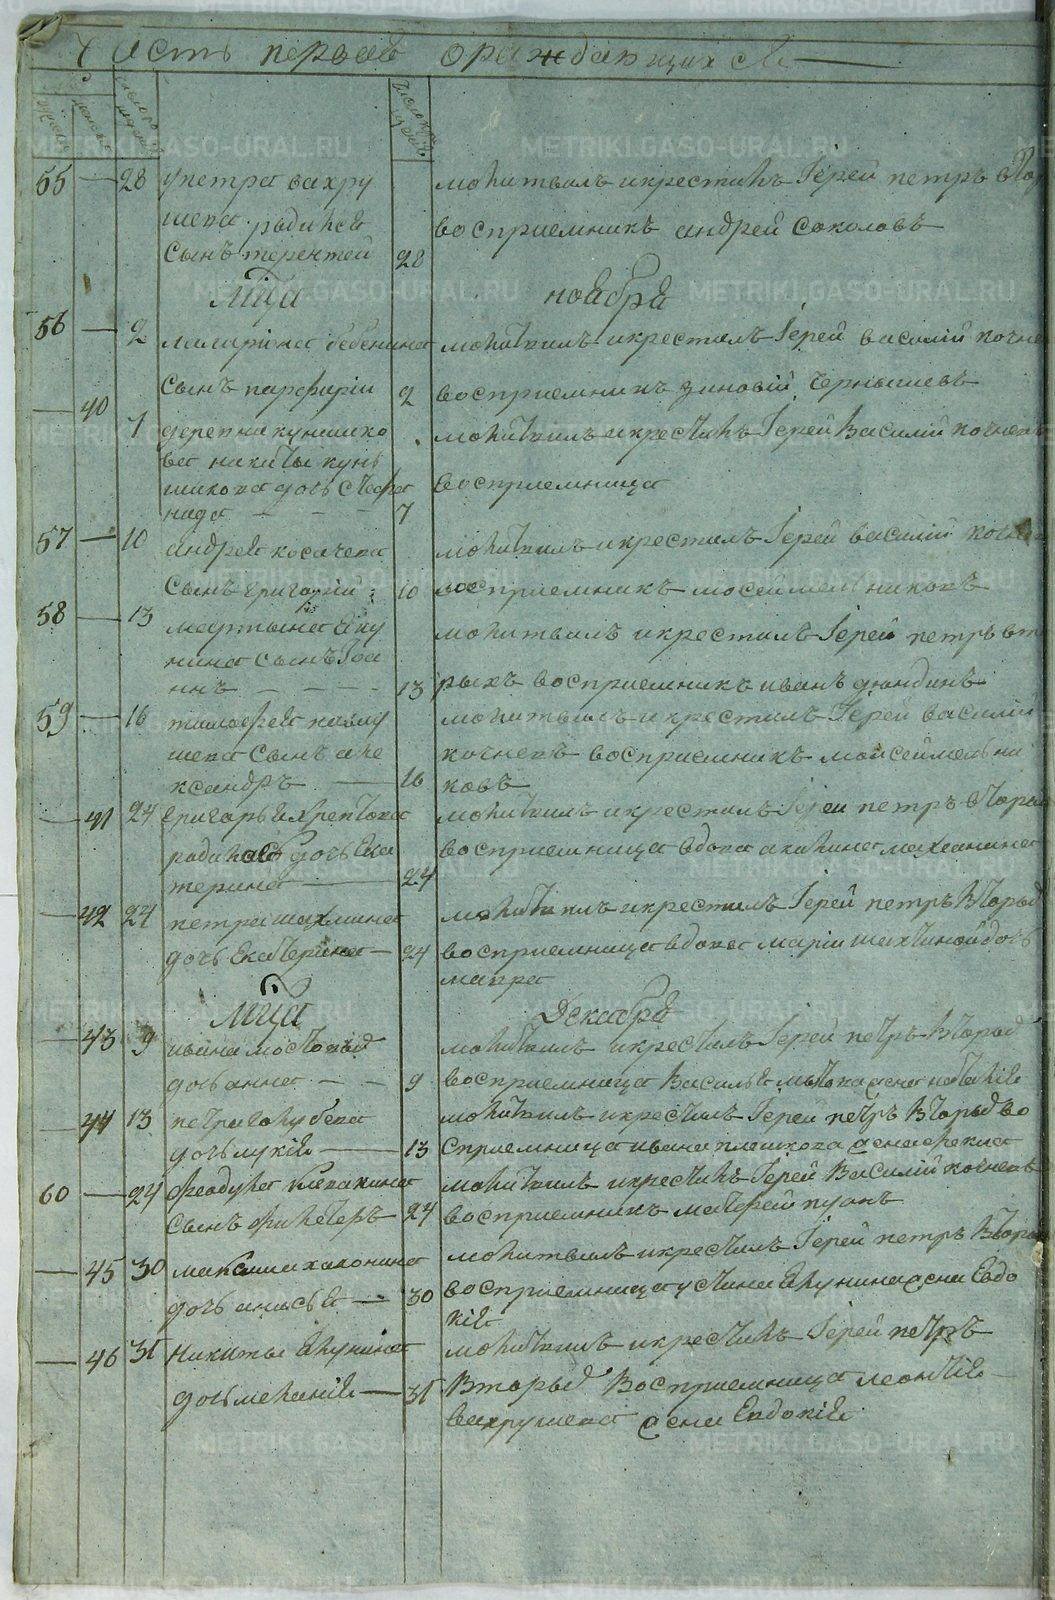 Часть первая ораждающихся
55 — 28 у петра вахру
шева родился
сынъ терентей 28
молитвилъ и крестилъ Іерей петръ втор
восприемникъ андрей соколовъ
мца ноября
56 — 2 иларіона бебенина
сынъ парфирій 2
молитвилъ и крестилъ Іерей василій кочне
восприемникъ зиновій чернышевъ
— 40 7 деревни куншико
ва никиты кунь
шикова дочь
нида — — — 7
молитвилъ и крестилъ Іерей Василій кочневъ
восприемница
57 — 10 андрея косачева
сынъ григорій 10
молитвилъ и крестилъ Іерей василій кочнев
восприемникъ мосей мельниковъ
58 — 13 мартына яку
нина сынъ Іоа
ннъ — — — 13
молитвилъ и крестилъ Іерей петръ вто
рыхъ восприемникъ иванъ дюндинъ
59 — 16 тимофея вахру
шева сынъ але
ксандръ — 16
молитвилъ и крестилъ Іерей василій
кочневъ восприемникъ мойсей мельни
ковъ
— 41 24 григорья хрептова
родилась дочь Ека
терина — 24
молитвилъ и крестилъ Іерей петръ втора
восприемница вдова акилина маханина
— 42 24 петра шахмина
дочь Екатерина — 24
молитвилъ и крестилъ Іерей петръ вторыхъ
восприемница вдова маріи шахминой дочь
мавра
мца Декабря
— 43 9 ивана мостовыхъ
дочь анна — — 9
молитвилъ и крестилъ Іерей петръ вторыхъ
восприемница Василья жена наталія
— 44 13 петра голубева
дочь лукія — 13
молитвилъ и крестилъ Іерей петръ вторыхъ во
сприемница ивана плешкова жена фекла
60 — 24 феодула клевакина
сынъ филетеръ 24
молитвилъ и крестилъ Іерей Василій кочневъ
восприемникъ матфей
— 45 30 максима халонина
дочь анисья — 30
молитвилъ и крестилъ Іерей петръ втора
восприемница устина якунина жена Евдо
кія
— 46 31 Никиты якунина
дочь меланія — 31
молитвилъ и крестилъ Іерей петръ
вторыхъ восприемница леонтія
вахрушева жена Евдокія
METRIKI.GASO-URAL.RU